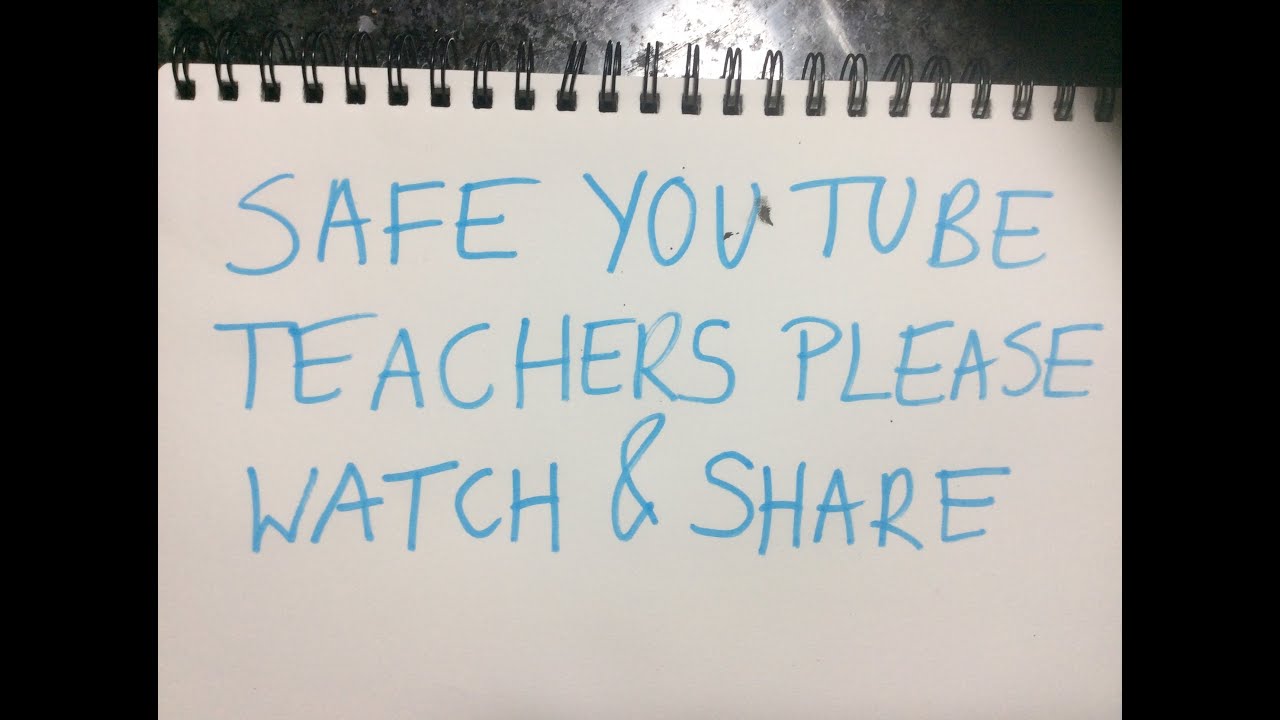 SAFE YOU TUBE
TEACHERS PLEASE
WATCH & SHARE